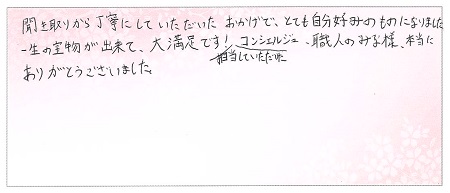 聞き取りから丁寧にしていただいたおかげで、とても自分好みのものになりました
一生の宝物が出来て、大満足です！コンシェルジュ、職人のみな様、本当に
担当していただいた
ありがとうございました。